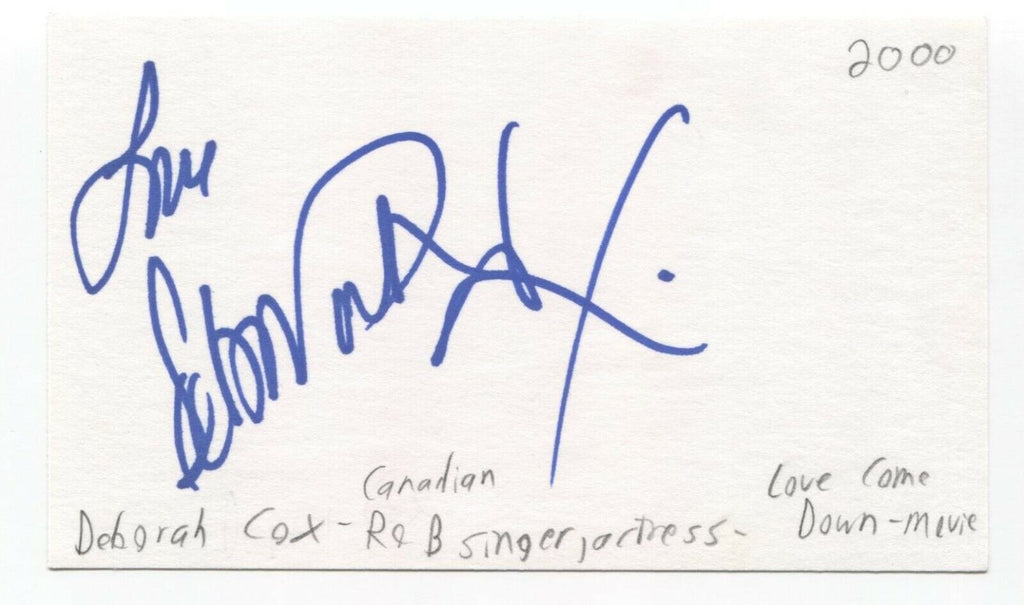 2000
Love
Deborah Cox.
Canadian
Deborah Cox - R&B singer, actress -
Love Come
Down - movie